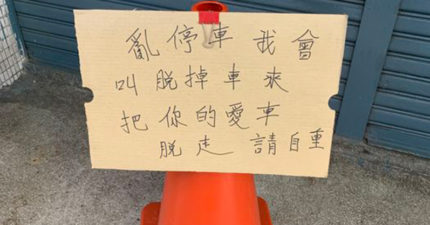 亂停車我會
叫脫掉車來
把你的愛車
脫走 請自重